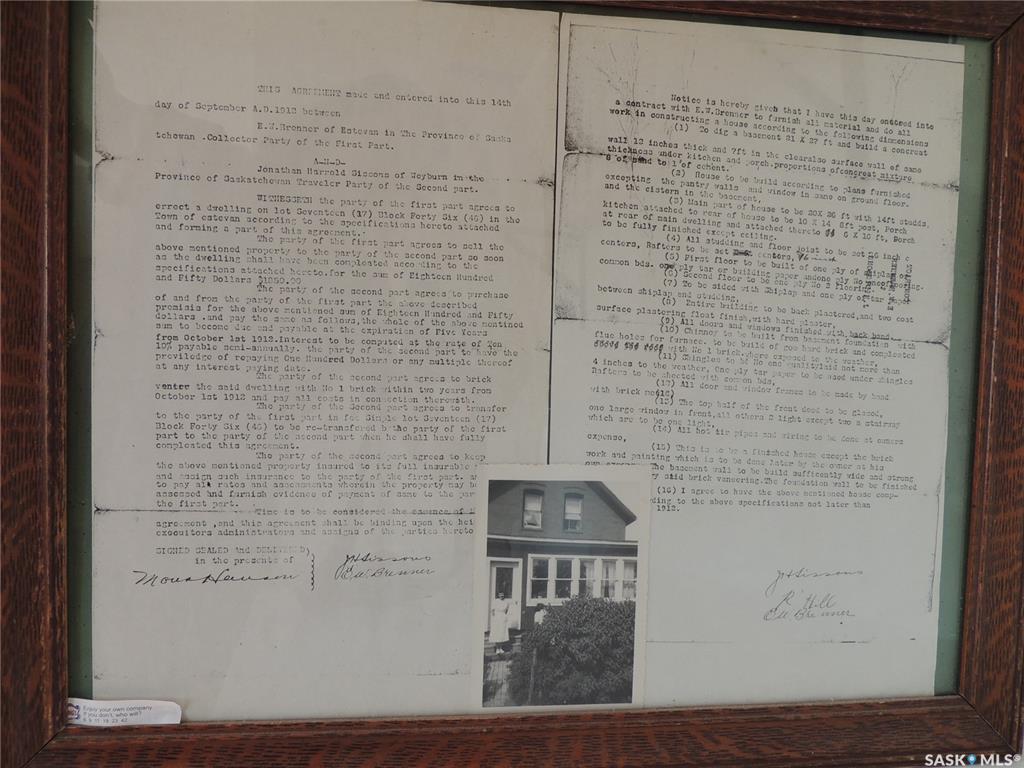 THIS AGREEMENT made and entered into this 14th
day of September A.D.1912 between
E.W.Brenner of Estevan in The Province of Saska
tchowan .Collector Party of the First Part.
A-N-D-
Jonathan Harrold Sissons of Weyburn in the
Province of Saskatchewan Traveler Party of the Second part.
WITNESSETH the party of the first part agrees to
errect a dwelling on lot Seventeen (17) Block Forty Six (46) in the
Town of estevan according to the specifications hereto attached
and forming a part of this agreement.
The party of the first part agrees to sell the
above mentioned property to the party of the second part so soon
as the dwelling shall have been compleated according to the
specifications attached hereto.for the sum of Eighteen Hundred
and Fifty Dollars $1850.00
The party of the second part agrees to purchase
of and from the party of the first part the above described
premisis for the above mentioned sum of Eighteen Hundred and Fifty
dollars .and pay the same as follows,the whole of the above mentioned
sum to become due and payable at the expiration of Five Years
from October 1st 1912.Interest to be computed at the rate of Ten
10% payable semi-annually. the party of the second part to have the
previledge of repaying One Hundred Dollars or any multiple thereof
at any interest paying date.
The party of the second part agrees to brick
ventre the said dwelling with No 1 brick within two years from
October 1st 1912 and pay all costs in connection therewith.
The party of the Second part agrees to transfer
to the party of the first part in fee Simple lot Seventeen (17)
Block Forty Six (46) to be re-transfered to the party of the first
part to the party of the second part when he shall have fully
compleated this agreement.
The party of the second part agrees to keep
the above mentioned property insured to its full insurable
and assign such insurance to the party of the first part.
to pay all rates and assessments wherein the property may be
assessed and furnish evidence of payment of same to the par
the first part.
Time is to be considered the essence of th
agreement ,and this agreement shall be binding upon the hei
executors administrators and assigns of the parties hereto
SIGNED SEALED and DELIVERED)
in the presents of
JHSissons
E.W.Brenner
Notice is hereby given that I have this day entered into
a contract with E.W.Brenner to furnish all material and do all
work in constructing a house according to the following dimensions
(1) To dig a basement 21 X 27 ft and build a concreat
wall 12 inches thick and 7ft in the clearalso surface wall of same
thickness under kitchen and porch-proportions ofcongreat mixture
8 of sand to 1 of cement.
(2) House to be build according to plans furnished
excepting the pantry walls and window in same on ground floor.
and the cistern in the basement,
(3) Main part of house to be 20X 26 ft with 14ft studds,
kitchen attached to rear of house to be 10 X 14 8ft post, Porch
at rear of main dwelling and attached thereto 6 X 10 ft, Porch
to be fully finished except ceiling.
(4) All studding and floor joist to be set 16 inch c
centers, Rafters to be set centers, 16 inch
(5) First floor to be built of one ply of shiplap or
common bds. one ply tar or building paper andone ply No
(6) Second floor to be one ply No 2 flooring.
(7) To be sided with Shiplap and one ply of tar paper
between shiplap and studding,
(8) Entire building to be back plastered,and two cost
surface plastering float finish,with hard plaster,
(9) All doors and windows finished with back band.
(10) Chimney to be built from basement foundation with
flue holes for furnace. to be build of goo hard brick and compleated
with No 1 brick.where exposed to the weather,
(11) Shingles to be No one qualitylaid not more than
4 inches to the weather, One ply tar paper to be used under shingles
Rafters to be sheeted with common bds,
(12) All door and window frames to be made by hand
with brick
(13) The top half of the front door to be glased,
one large window in front,all others 2 light except two a stairway
which are to be one light,
(14) All hot air pipes and wiring to be done at owners
expense,
(15) This is to be a finished house except the brick
work and painting which is to be done later by the owner at his
The basement wall to be build sufficently wide and strong
said brick vaneering.The foundation wall to be finished
(16) I agree to have the above mentioned house comp-
ding to the above specifications not later than
1912.
JHSissons
R Hill
E.W. Brenner
Enjoy your own company.
If you don't, who will?
SASK MLS®